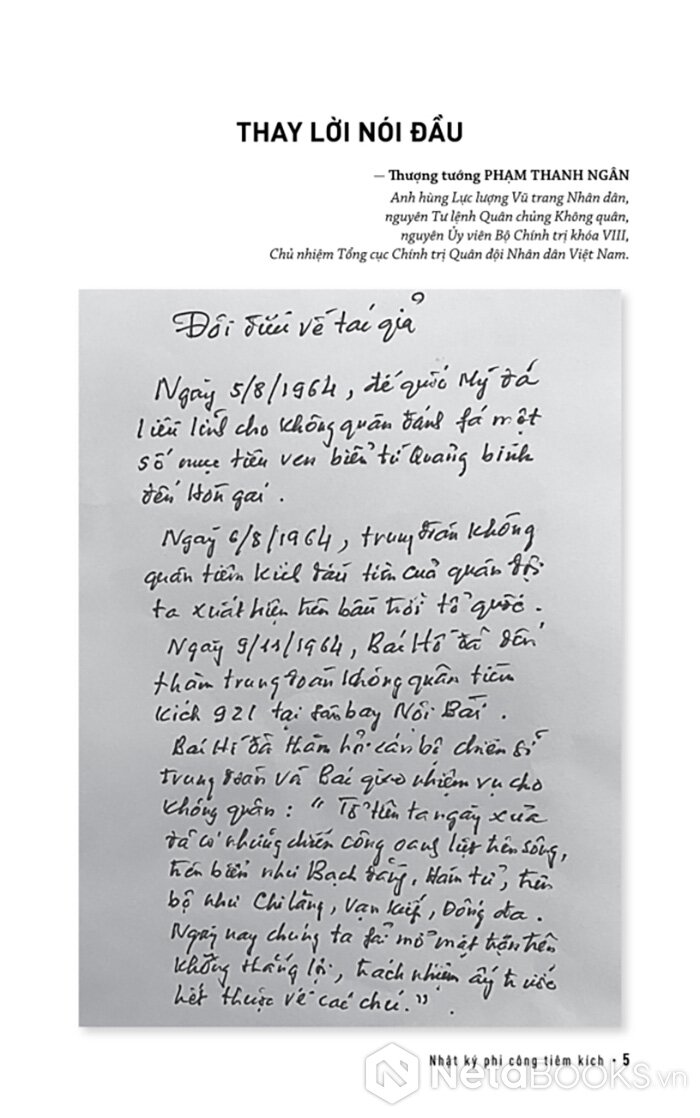 THAY LỜI NÓI ĐẦU
— Thượng tướng PHẠM THANH NGÂN
Anh hùng Lực lượng Vũ trang Nhân dân,
nguyên Tư lệnh Quân chủng Không quân,
nguyên Ủy viên Bộ Chính trị khóa VIII,
Chủ nhiệm Tổng cục Chính trị Quân đội Nhân dân Việt Nam.
Đôi điều về tác giả
Ngày 5/8/1964, đế quốc Mỹ đã
liều lĩnh cho không quân đánh fá một
số mục tiêu ven biển từ Quảng bình
đến Hòn gai.
Ngày 6/8/1964, trung đoàn không
quân tiêm kích đầu tiên của quân đội
ta xuất hiện trên bầu trời tổ quốc.
Ngày 9/11/1964, Bác Hồ đã đến
thăm trung đoàn không quân tiêm
kích 921 tại sân bay Nội Bài.
Bác Hồ đã thăm hỏi cán bộ chiến sĩ
trung đoàn và Bác giao nhiệm vụ cho
không quân: "Tổ tiên ta ngày xưa
đã có những chiến công oanh liệt trên sông,
trên biển như Bạch đằng, Hàm tử, trên
bộ như Chi lăng, Vạn kiếp, Đống đa.
Ngày nay chúng ta fải mở mặt trận trên
không thắng lợi, trách nhiệm ấy trước
hết thuộc về các chú.".
Nhật ký phi công tiêm kích • 5
NetaBOOKS.vn